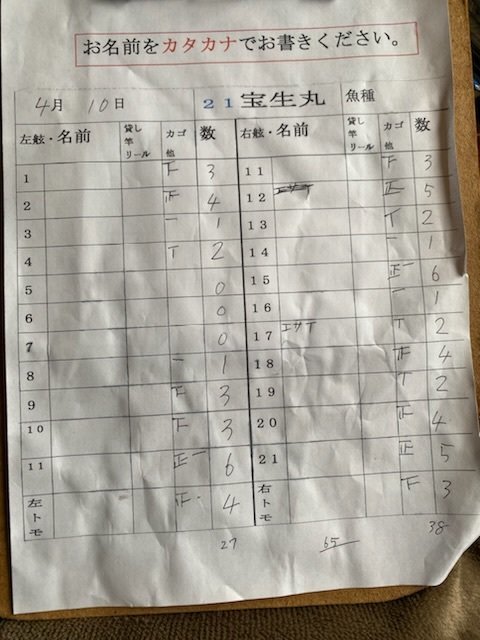 お名前をカタカナでお書きください。
4月 10日 21宝生丸 魚種
左舷・名前 貸し竿リール カゴ他 数 右舷・名前 貸し竿リール カゴ他 数
1 下 3 11 下 3
2 正 4 12 正 5
3 一 1 13 T 2
4 T 2 14 一 1
5 0 15 正一 6
6 0 16 一 1
7 0 17 エサT T 2
8 一 1 18 正 4
9 下 3 19 T 2
10 下 3 20 正 4
11 正一 6 21 正 5
左トモ 正 4 右トモ 下 3
27 65 38